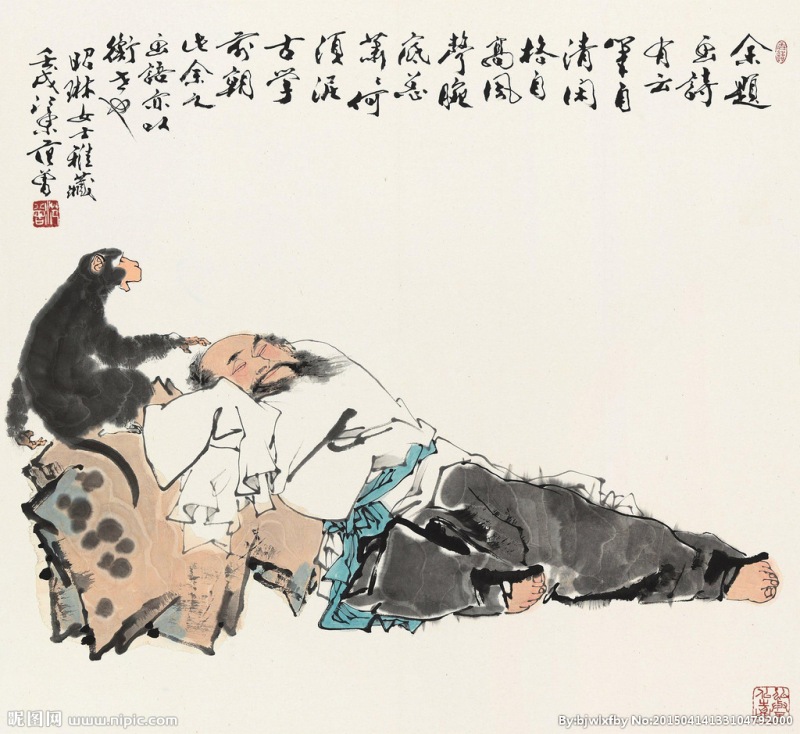 余題
画詩
有云
筆自
清閑
格自
高風
聲腕
底
蕭〻何
須泥
古学
前朝
此余之
画語亦以
衡也
昭琳女士雅藏
壬戌江東范曾
昵图网 www.nipic.com
By:bjwlxfby No:20150414133104792000